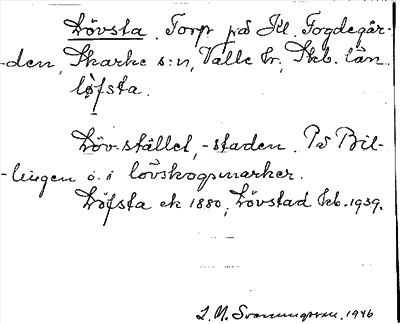 Lövsta. Torp på Kl. Fogdegår-
-den, Skarke s:n, Valle hr, Skb. län.
lø̀fsta.
Löv-stället, -staden. På Bil-
-lingen o. i lövskogsmarker.
Löfsta ek 1880, Lövstad kb. 1939.
L. M. Svanungsson. 1946